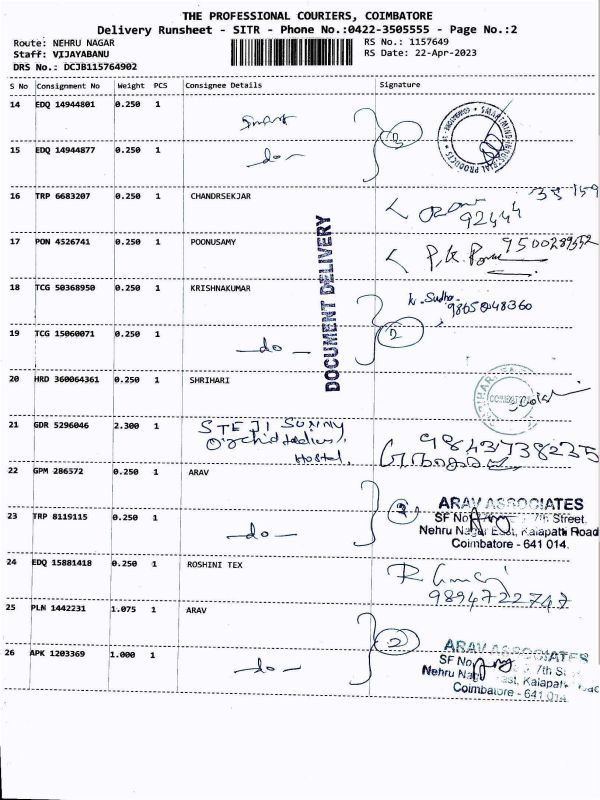 THE PROFESSIONAL COURIERS, COIMBATORE
Delivery Runsheet - SITR - Phone No.:0422-3505555 - Page No.:2
Route: NEHRU NAGAR
RS No.: 1157649
Staff: VIJAYABANU
RS Date: 22-Apr-2023
DRS No.: DCJB115764902
S No Consignment No Weight PCS Consignee Details Signature
14 EDQ 14944801 0.250 1 Smart
15 EDQ 14944877 0.250 1 -do-
16 TRP 6683207 0.250 1 CHANDRSEKJAR
17 PON 4526741 0.250 1 POONUSAMY
DOCUMENT DELIVERY
18 TCG 50368950 0.250 1 KRISHNAKUMAR
19 TCG 15060071 0.250 1 -do- 2
20 HRD 360064361 0.250 1 SHRIHARI
21 GDR 5296046 2.300 1 STEJI SUNNY
Orchid ladies
Hostel. 9843738235
22 GPM 286572 0.250 1 ARAV
ARAV ASSOCIATES
SF No 7th Street.
23 TRP 8119115 0.250 1 -do-
Nehru Nagar East, Kalapatti Road
Coimbatore - 641 014.
24 EDQ 15881418 0.250 1 ROSHINI TEX
9894722747
25 PLN 1442231 1.075 1 ARAV 2
ARAV ASSOCIATES
26 APK 1203369 1.000 1 -do-
SF No 7th
Nehru Nag East, Kalapat
Coimbatore - 641 014